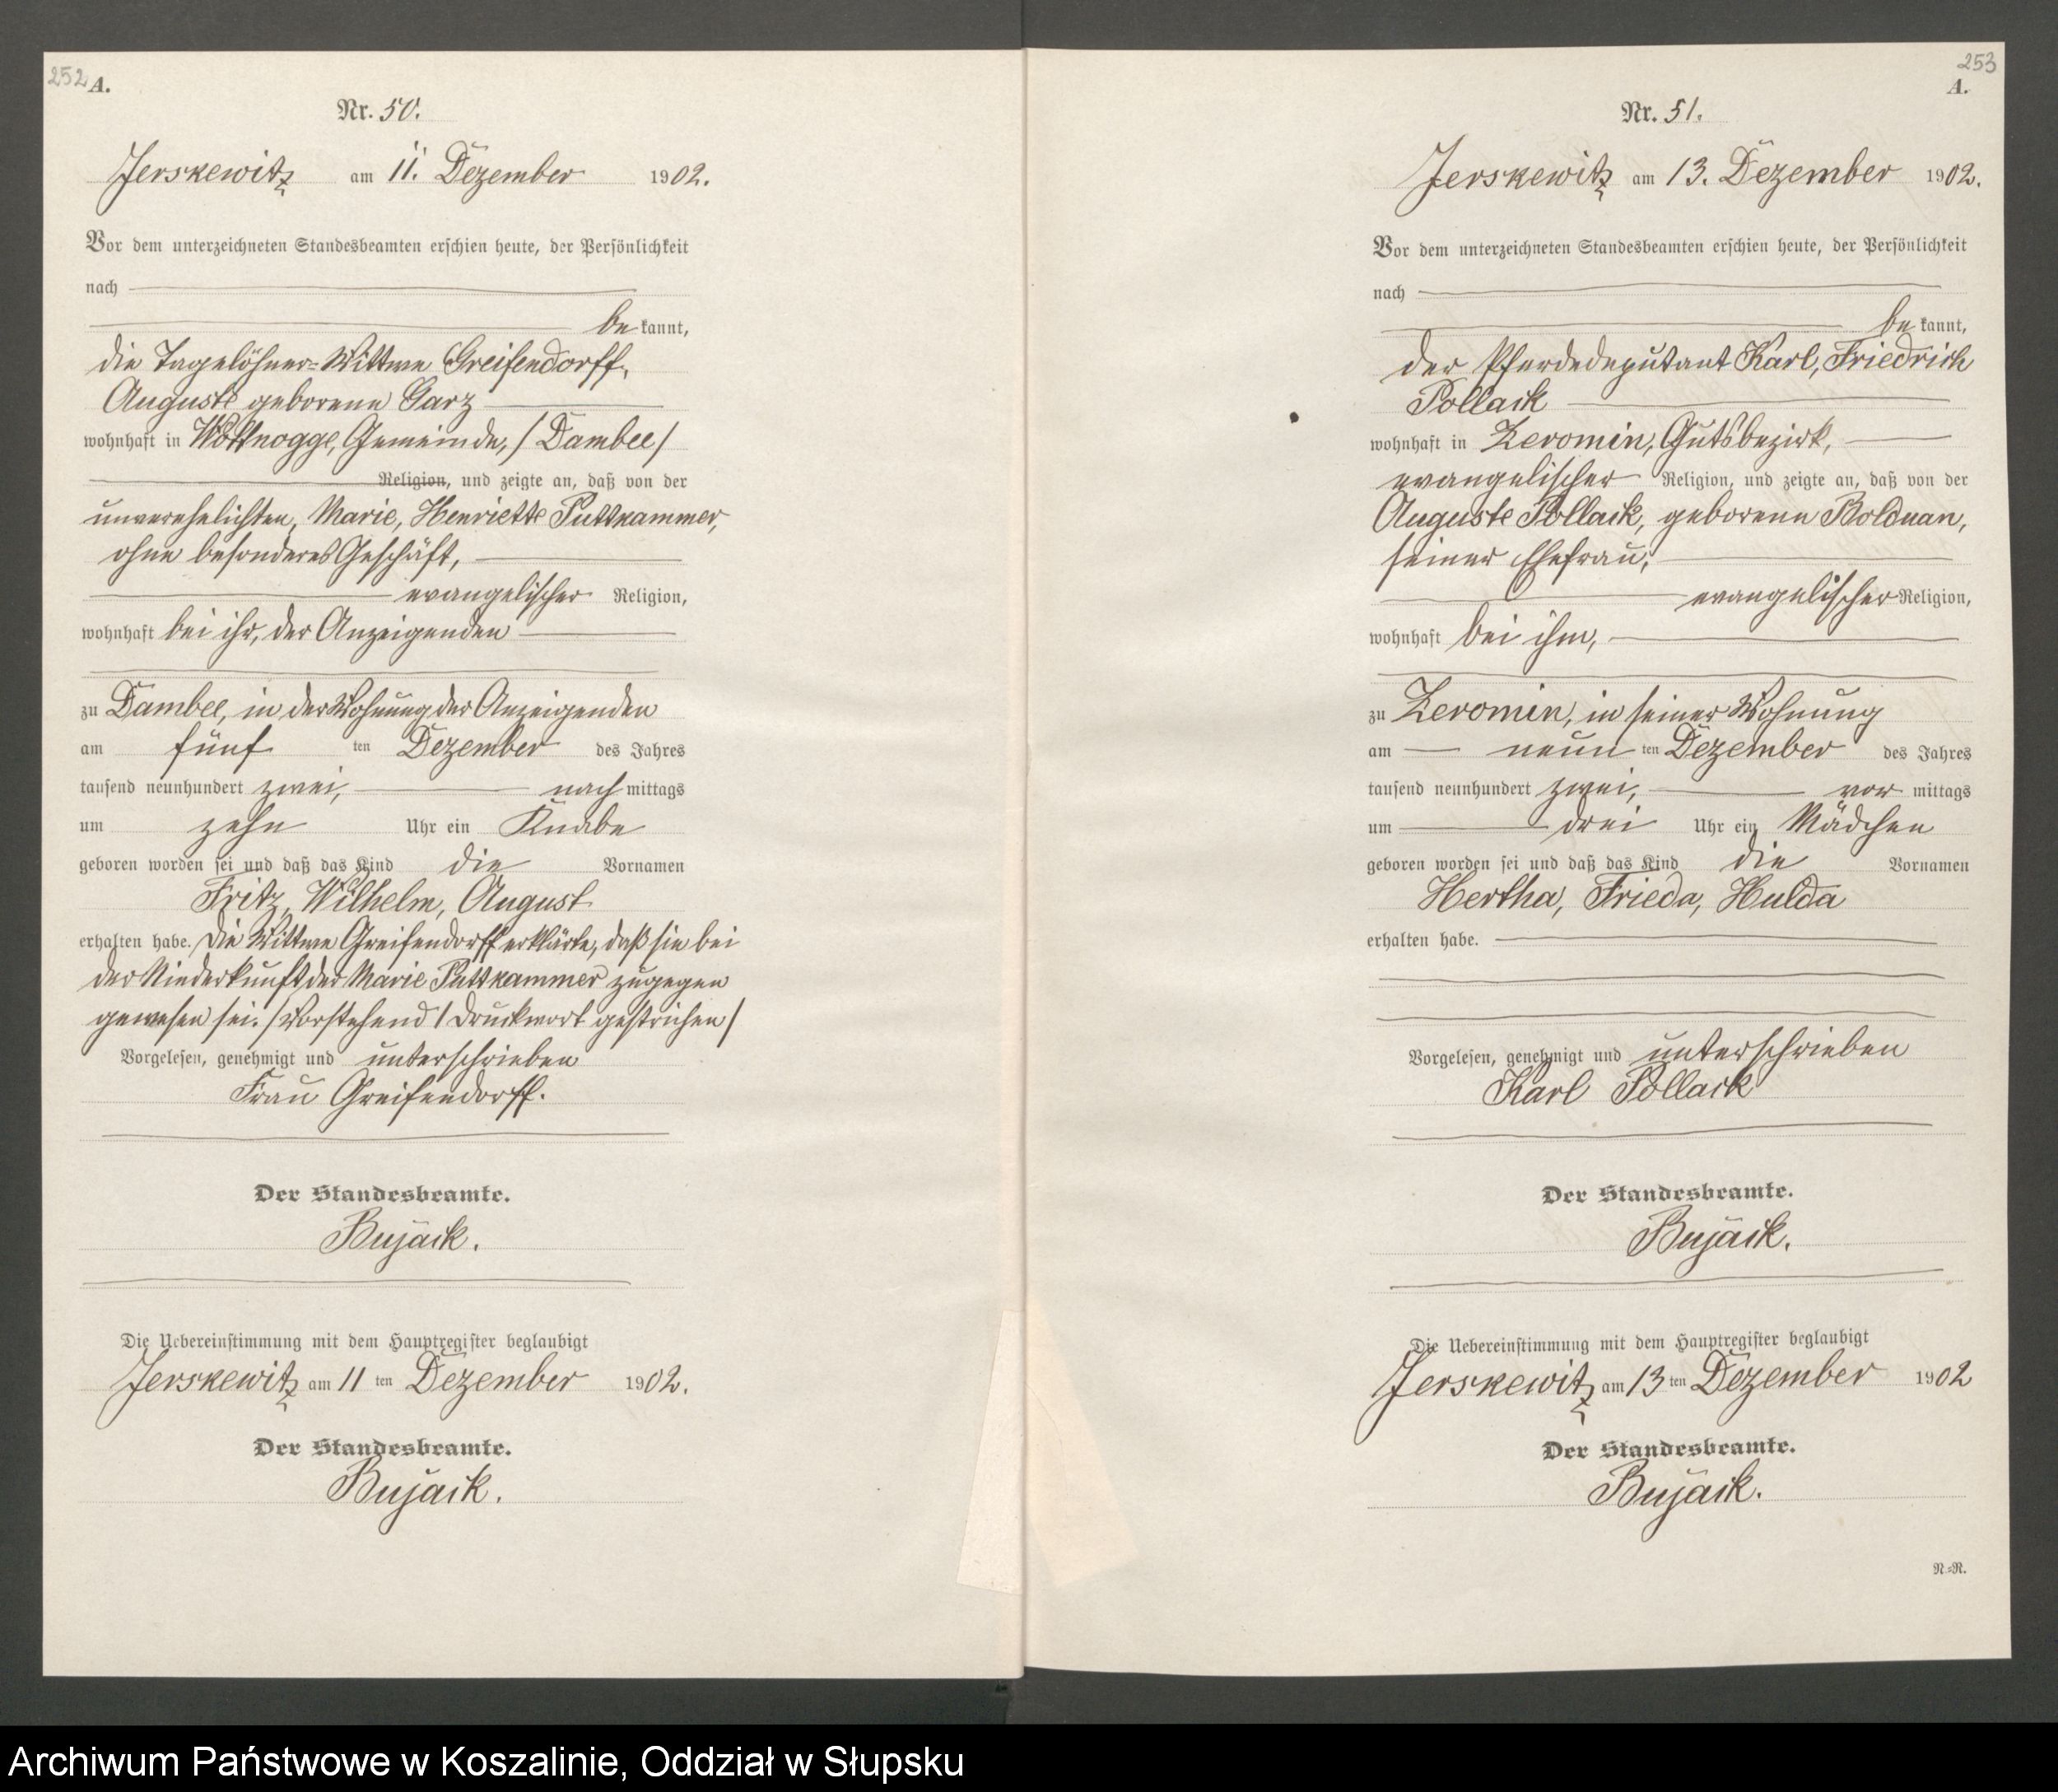 252 A.
Nr. 50.
Jerskewitz am 11. Dezember 1902.
Vor dem unterzeichneten Standesbeamten erschien heute, der Persönlichkeit
nach
be kannt,
die Tagelöhner-Wittwe Greifendorff,
Auguste geborene Garz
wohnhaft in Wottnogge, Gemeinde, / Dambee /
Religion, und zeigte an, daß von der
unverehelichten, Marie, Henriette Puttkammer,
ohne besonderes Geschäft,
evangelischer Religion,
wohnhaft bei ihr, der Anzeigenden
zu Dambee, in der Wohnung der Anzeigenden
am fünf ten Dezember des Jahres
tausend neunhundert zwei, nach mittags
um zehn Uhr ein Knabe
geboren worden sei und daß das Kind die Vornamen
Fritz, Wilhelm, August
erhalten habe. Die Wittwe Greifendorff erklärte, daß sie bei
der Niederkunft der Marie Puttkammer zugegen
gewesen sei. / Vorstehend 1 Druckwort gestrichen /
Vorgelesen, genehmigt und unterschrieben
Frau Greifendorff.
Der Standesbeamte.
Bujack.
Die Uebereinstimmung mit dem Hauptregister beglaubigt
Jerskewitz am 11 ten Dezember 1902.
Der Standesbeamte.
Bujack.
253
A.
Nr. 51.
Jerskewitz am 13. Dezember 1902.
Vor dem unterzeichneten Standesbeamten erschien heute, der Persönlichkeit
nach
be kannt,
der Pferdedeputant Karl, Friedrich
Pollack
wohnhaft in Zeromin, Gutsbezirk,
evangelischer Religion, und zeigte an, daß von der
Auguste Pollack, geborene Bolduan,
seiner Ehefrau,
evangelischer Religion,
wohnhaft bei ihm,
zu Zeromin, in seiner Wohnung
am neun ten Dezember des Jahres
tausend neunhundert zwei, vor mittags
um drei Uhr ein Mädchen
geboren worden sei und daß das Kind die Vornamen
Hertha, Frieda, Hulda
erhalten habe.
Vorgelesen, genehmigt und unterschrieben
Karl Pollack
Der Standesbeamte.
Bujack.
Die Uebereinstimmung mit dem Hauptregister beglaubigt
Jerskewitz am 13 ten Dezember 1902
Der Standesbeamte.
Bujack.
N=R.
Archiwum Państwowe w Koszalinie, Oddział w Słupsku